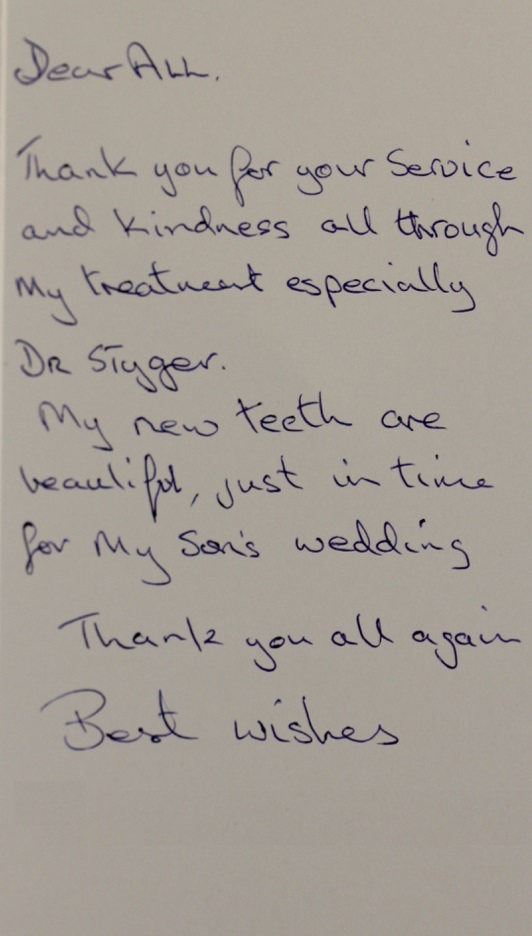 Dear ALL.
Thank you for your Service
and kindness all through
My treatment especially
DR STyger.
My new teeth are
beautiful, just in time
for My Son's wedding
Thank you all again
Best wishes